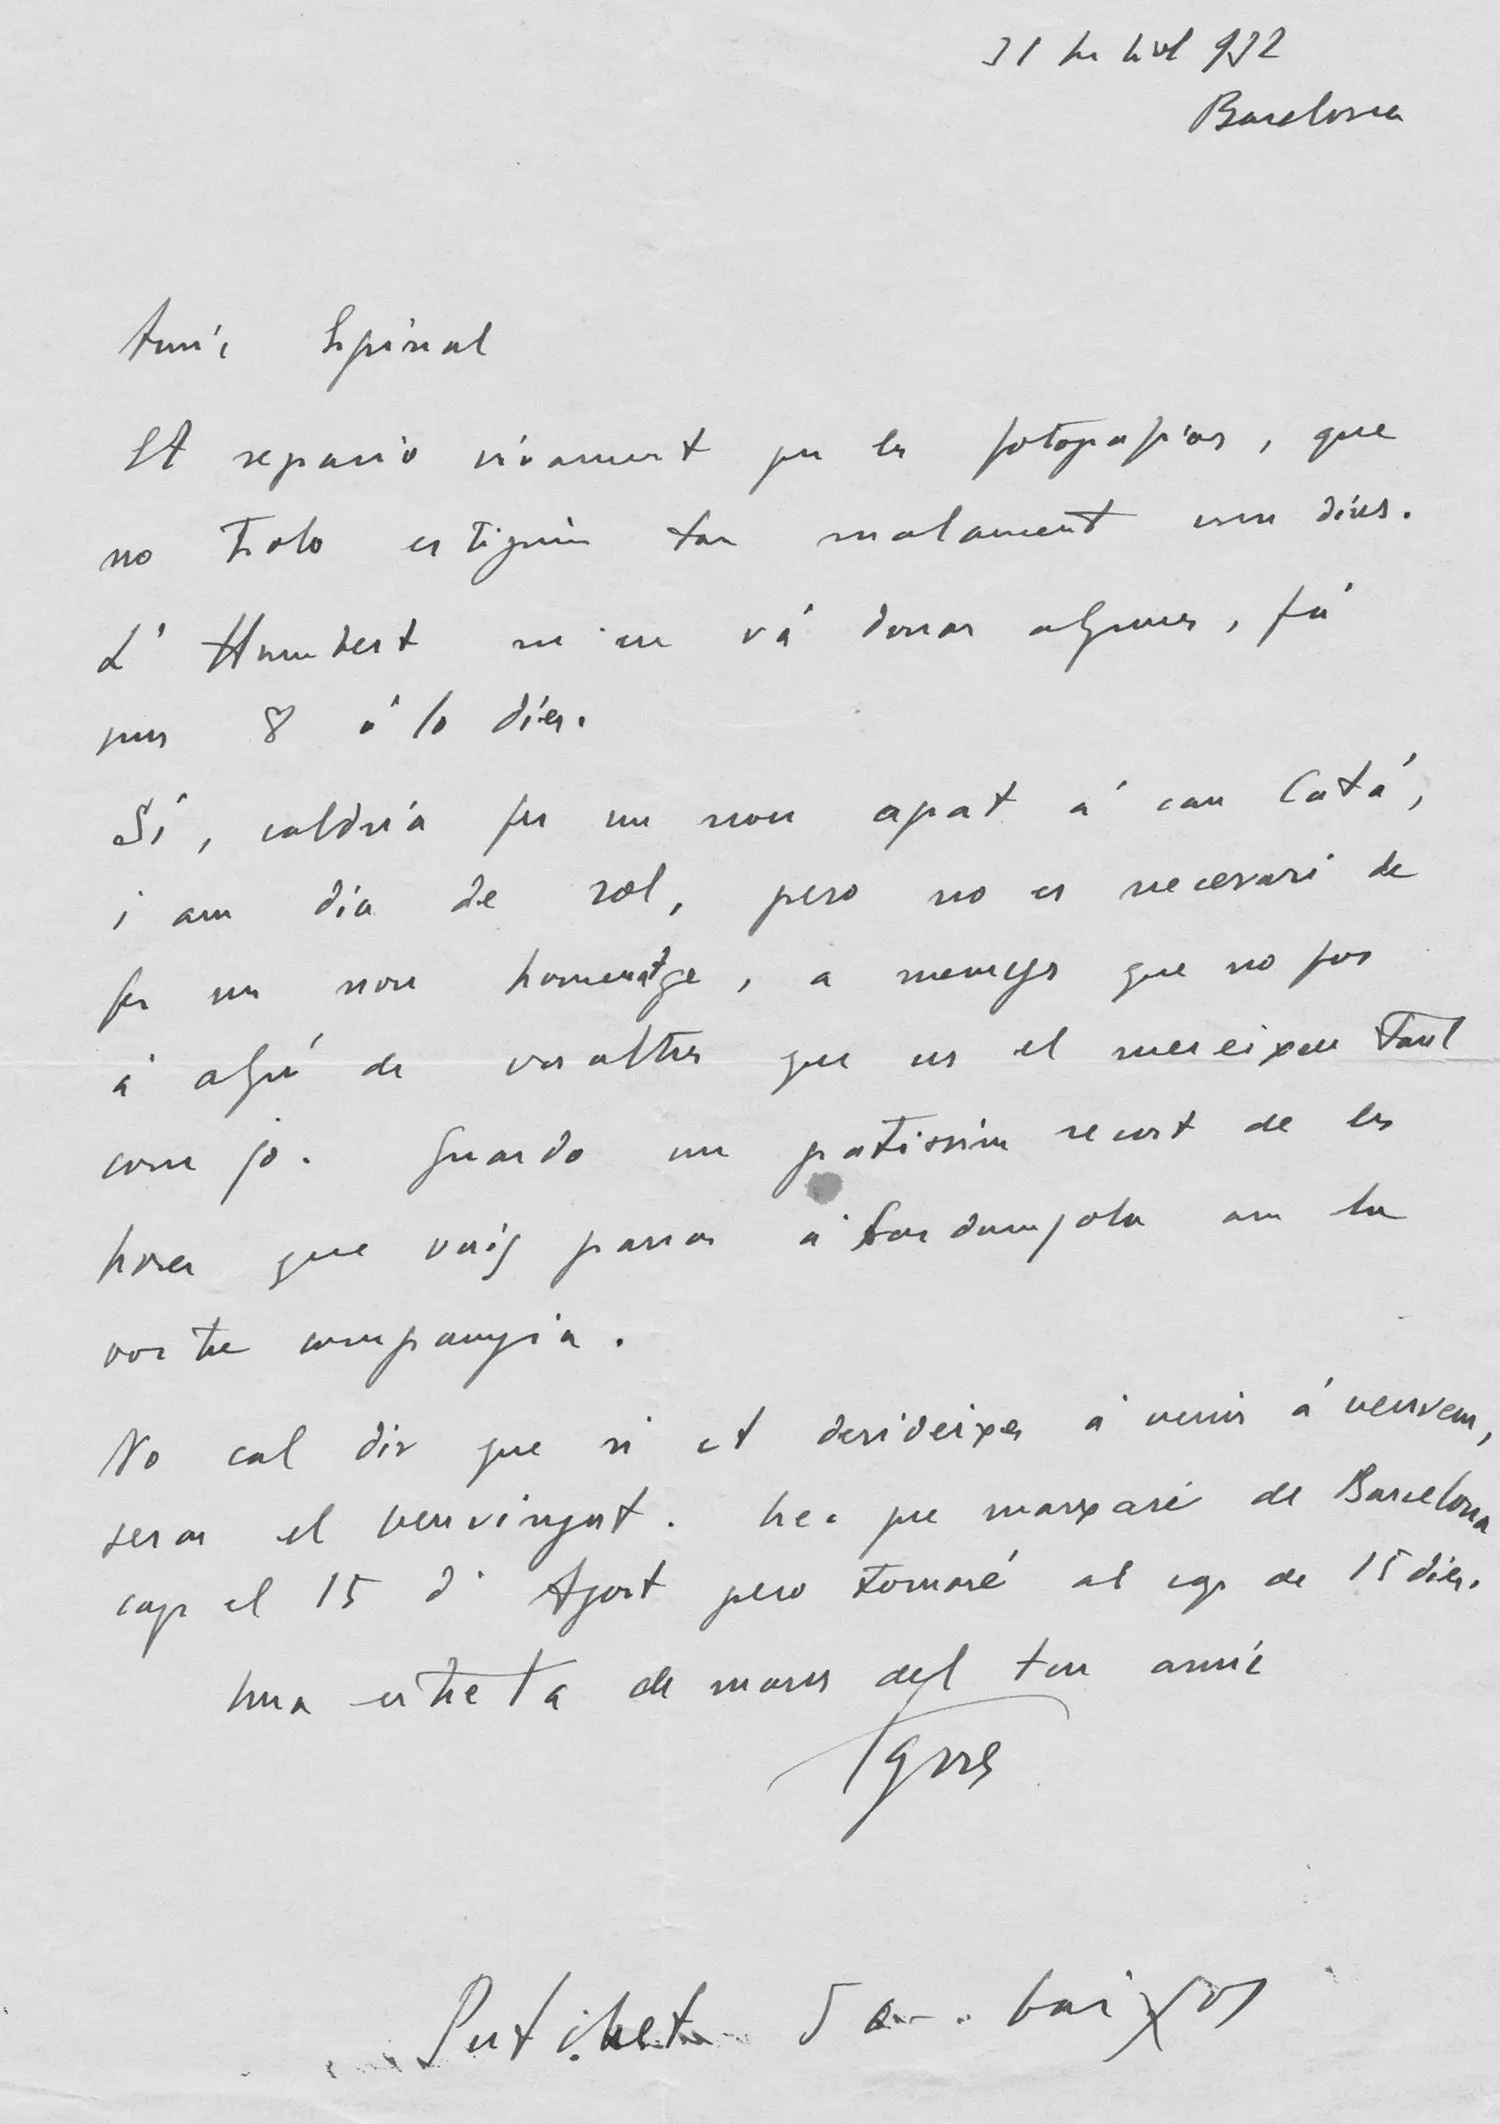 31 de Juliol 932
Barcelona
Amic Espinal
Et regracio vivament per les fotografias, que
no trobo estiguin tan malament com dius.
L' Humbert me'n vá donar algunes, fá
pues 8 ó 10 díes.
Sí, caldría fer un nou apat á can Catá,
i am día de sol, pero no es necesari de
fer un nou homenatge, a menys que no fos
á algú de vosaltres que us el mereixeu tant
com jo. Guardo un gratissim recort de les
hores que vaig passar á Sardanyola am la
vostre companyia.
No cal dir que si et desideixes á venir á veurem,
seras el benvingut. Crec que marxaré de Barcelona
cap el 15 d' Agost pero tornaré al cap de 15 díes.
Una estreta de mans del teu amic
Togores
Putchet 5 baixos